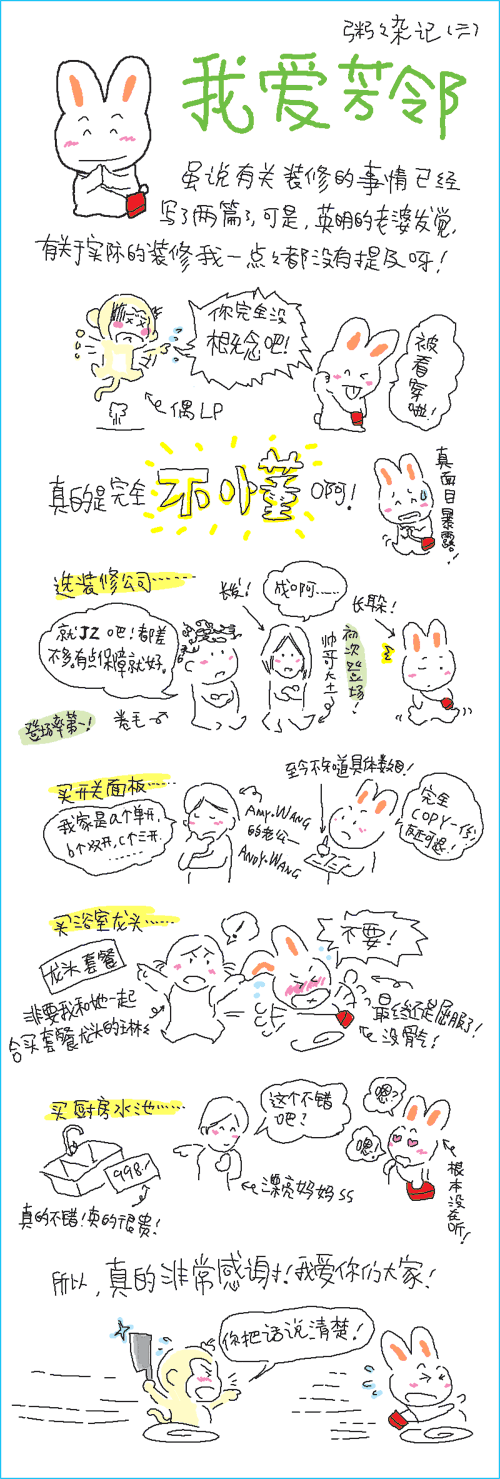 粥粥杂记(三)
我爱芳邻
虽说有关装修的事情已经
写了两篇了,可是,英明的老婆发觉,
有关于实际的装修我一点点都没有提及呀!
你完全没
概念吧!
被看穿啦!
偶LP
真的是完全
不懂
啊!
真面目暴露!
选装修公司……
长发!
成啊……
长躲!
就JZ吧!都差
不多。有点保障就好。
帅哥大土
初次登场!
登场率第一!
卷毛
买开关面板……
至今不知道具体数目!
我家是a个单开,
b个双开,c个三开,
……
Amy.WANG
的老公—
ANDY.WANG
完全
COPY一份,
反正可退!
买浴室龙头……
!
不要!
龙头套餐
非要我和她一起
合买套餐龙头的琳琳
最终还是屈服了!
没骨气!
买厨房水池……
这个不错
吧?
嗯?
嗯!
998.-
漂亮妈妈SS
根本没在听!
真的不错!卖的很贵!
所以,真的非常感谢!我爱你们大家!
你把话说清楚!